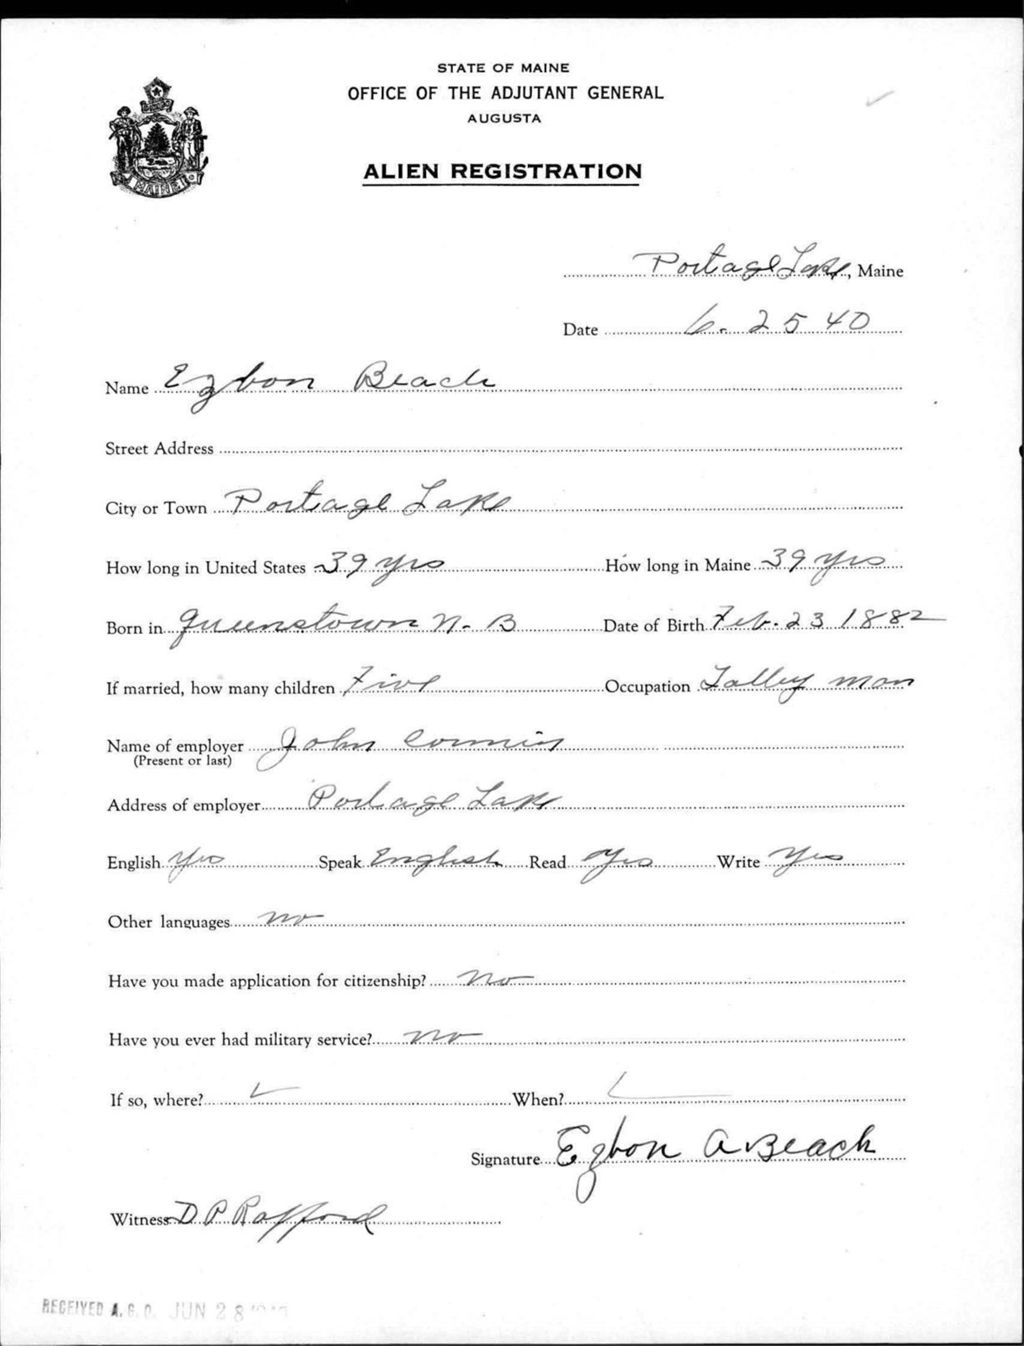 STATE OF MAINE
OFFICE OF THE ADJUTANT GENERAL
AUGUSTA
ALIEN REGISTRATION
MAINE
Portage Lake, Maine
Date 6. 25 40
Name Ezbon Beach
Street Address
City or Town Portage Lake
How long in United States 39 yrs How long in Maine 39 yrs
Born in Queenstown N. B Date of Birth Feb. 23 1882
If married, how many children Five Occupation Talley man
Name of employer John
(Present or last)
Address of employer Portage Lake
English Yes Speak English Read Yes Write Yes
Other languages no
Have you made application for citizenship? no
Have you ever had military service? no
If so, where? When?
Signature Ezbon A Beach
Witness D P Rafford
RECEIVED A. G. O. JUN 28